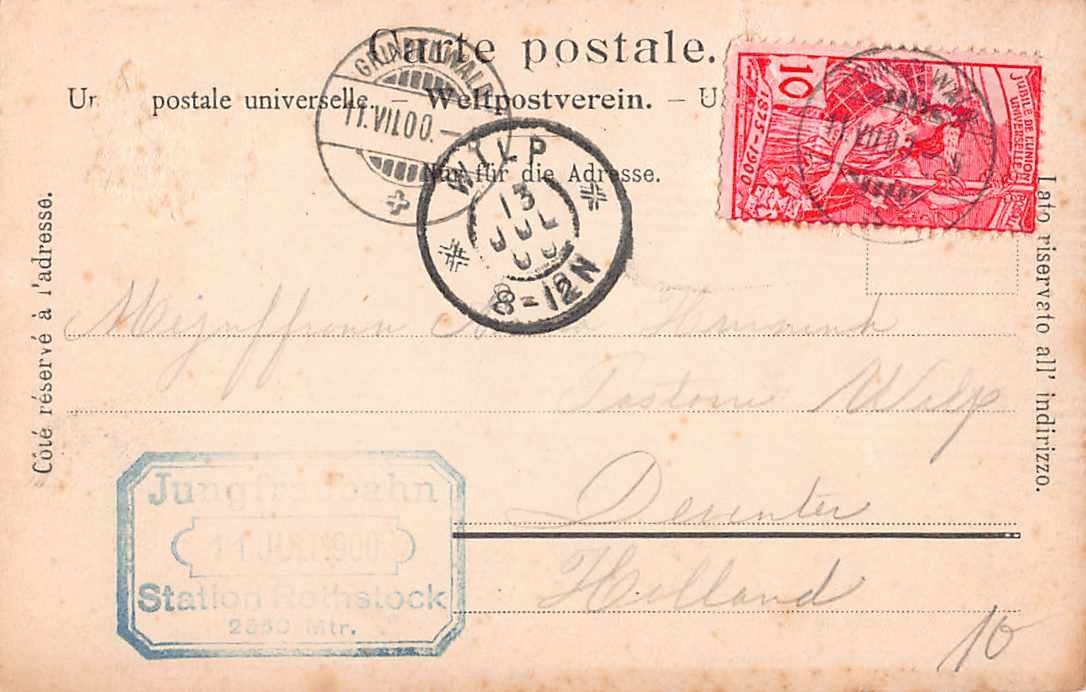 Carte postale.
Un postale universelle. – Weltpostverein. – U
Nur für die Adresse.
GRINDELWALD
11.VII.00.–
WILP
13
JUL
00
8-12N
10
1875-1900
JUBILÉ DE L'UNION
POSTALE UNIVERSELLE
GRINDELWALD
11.VII.00.
Côté réservé à l'adresse.
Lato riservato all' indirizzo.
Mejuffrouw
Pastorie Wilp
Deventer
Holland
10
Jungfraubahn
11.JULI 1900
Station Rothstock
2550 Mtr.